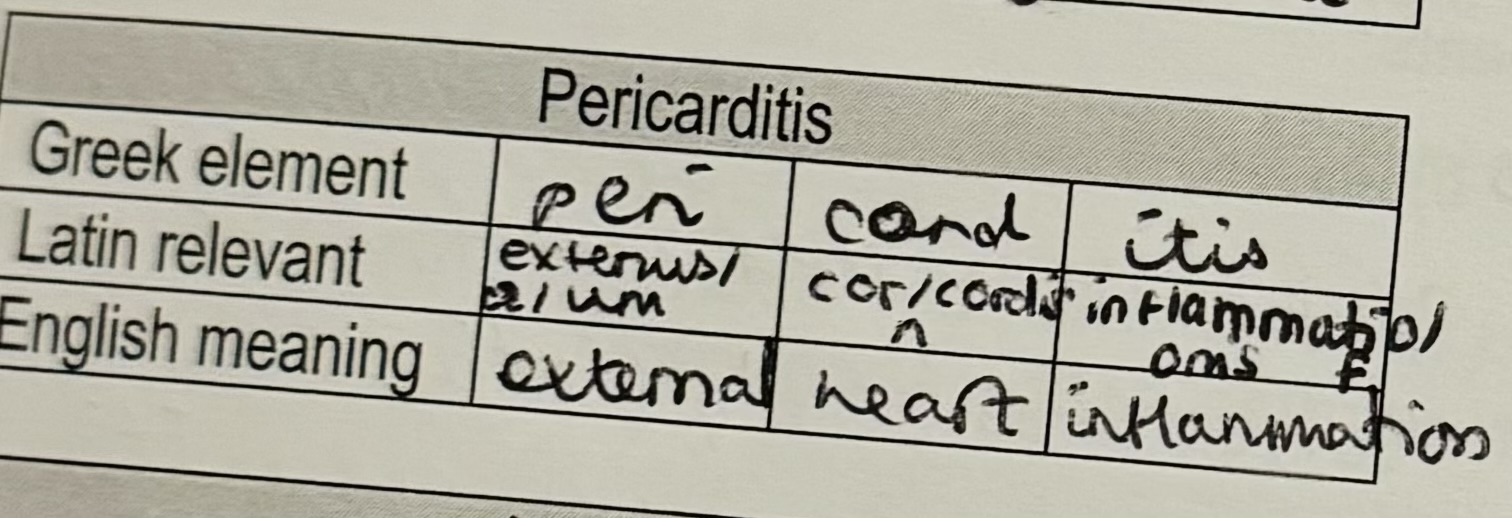 Pericarditis
Greek element peri card itis
Latin relevant externus/ cor/cordis inflammatio/
a/um n onis F
English meaning external heart inflammation